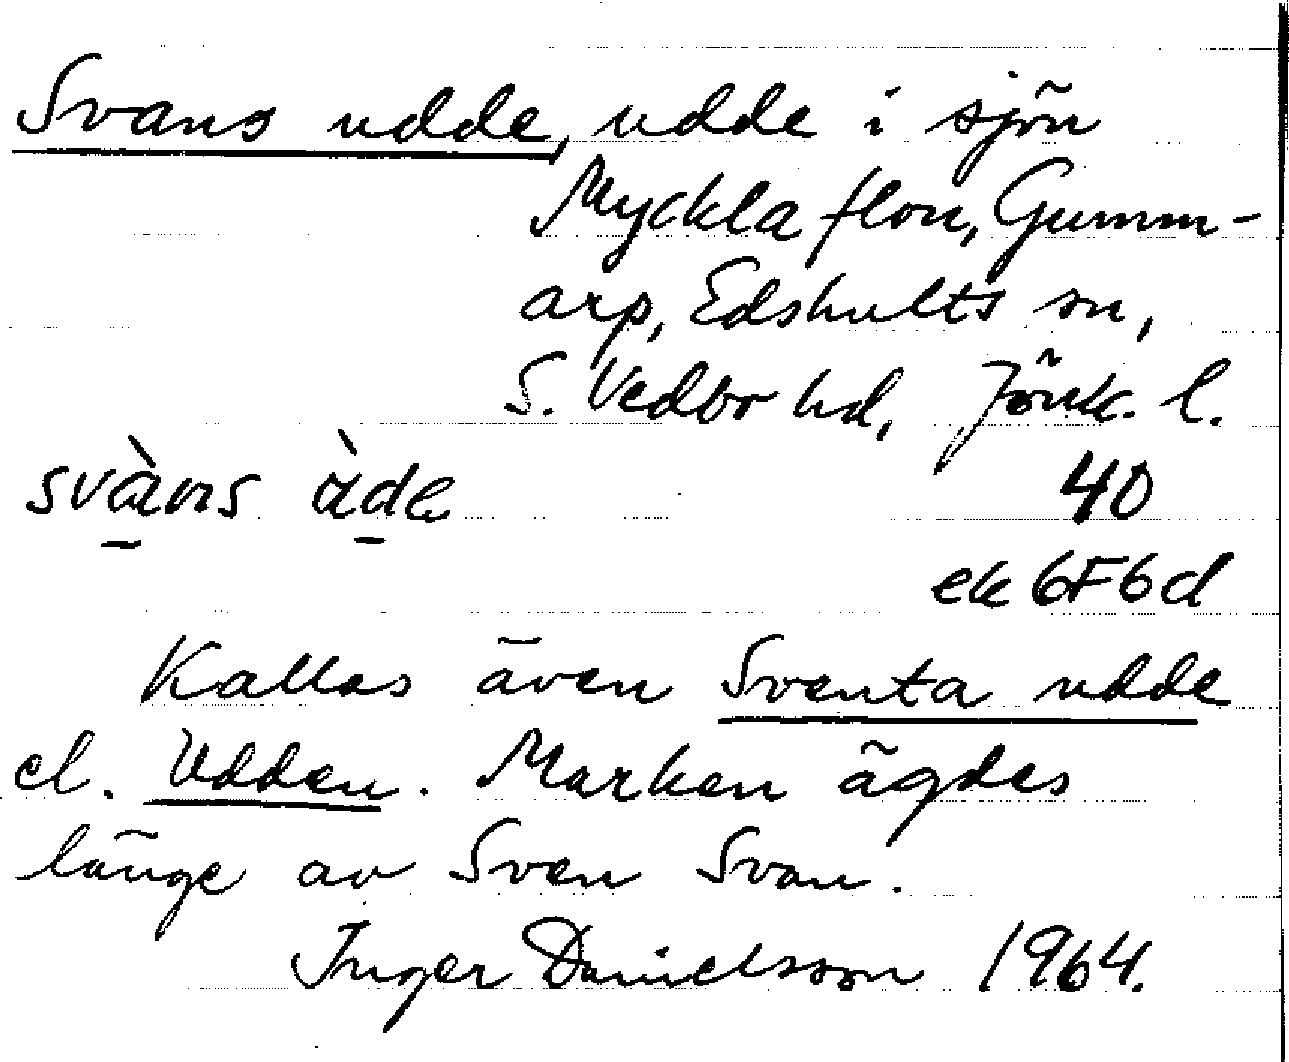 Svans udde, udde i sjön
Myckla flon, Gumm-
arp, Edshults sn,
S. Vedbo hd, Jönk. l.
svàns àde
40
ek 6F6d
Kallas även Sventa udde
el. Udden. Marken ägdes
länge av Sven Svan.
Inger Danielsson 1964.